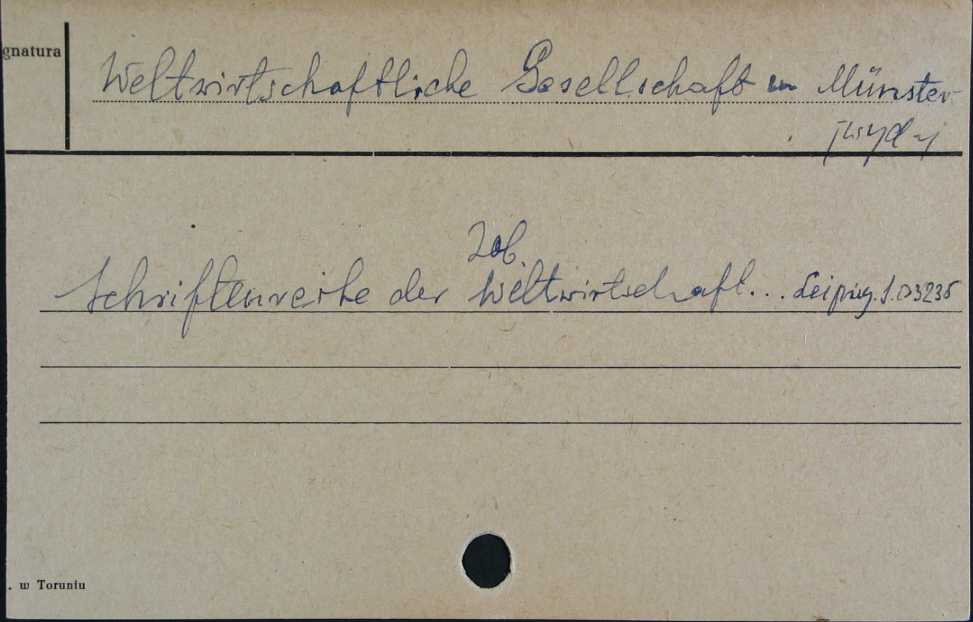 gnatura
Weltwirtschaftliche Gesellschaft in Münster
[wyd.]
Zob.
Schriftenreihe der Weltwirtschaft... Leipzig. S.03235
. w Toruniu